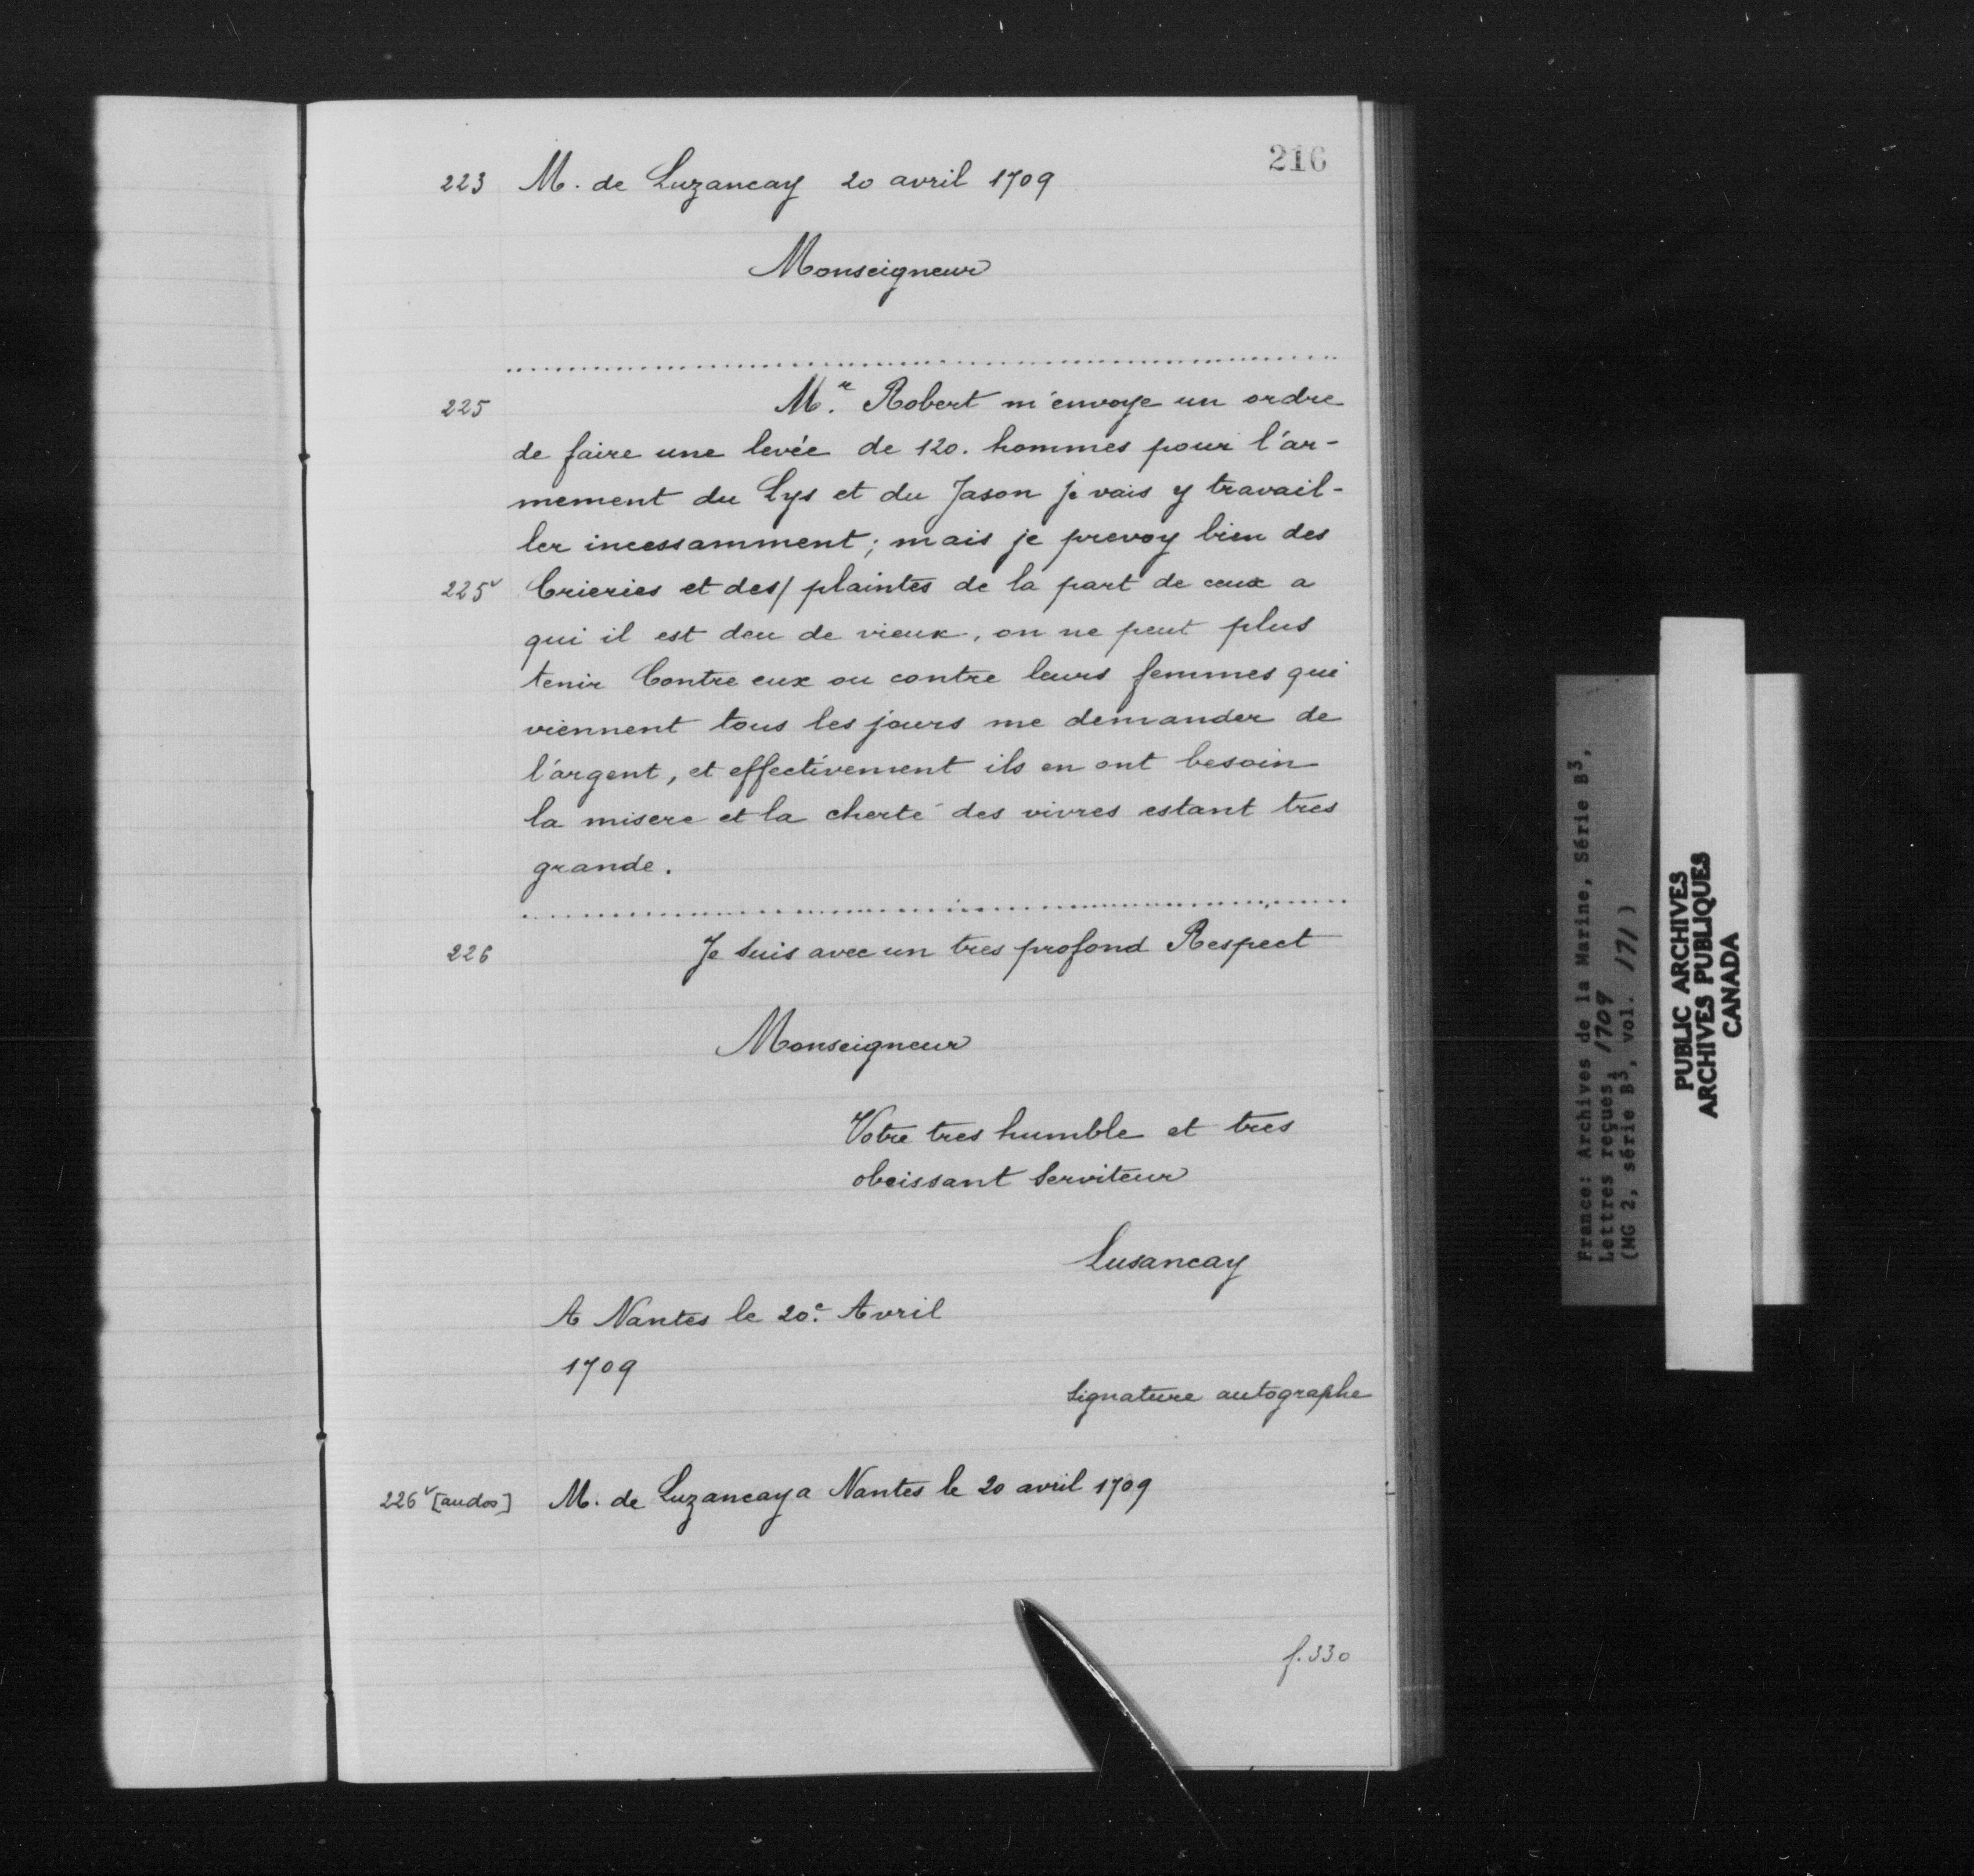 216
223 M. de Luzancay 20 avril 1709
Monseigneur
225 M.r Robert m'envoye un ordre
de faire une levée de 120. hommes pour l'ar-
mement du Lys et du Jason je vais y travail-
ler incessamment; mais je prevoy bien des
225v Crieries et des/ plaintes de la part de ceux a
qui il est deu de vieux, on ne peut plus
tenir Contre eux ou contre leurs femmes qui
viennent tous les jours me demander de
l'argent, et effectivement ils en ont besoin
la misere et la cherté des vivres estant tres
grande.
226 Je suis avec un tres profond Respect
Monseigneur
Votre tres humble et tres
obeissant Serviteur
Lusancay
A Nantes le 20.e Avril
1709
Signature autographe
226v [au dos] M. de Luzancay a Nantes le 20 avril 1709
f. 330
France: Archives de la Marine, Série B3,
Lettres reçues, 1709
(MG 2, série B3, vol. 171)
PUBLIC ARCHIVES
ARCHIVES PUBLIQUES
CANADA